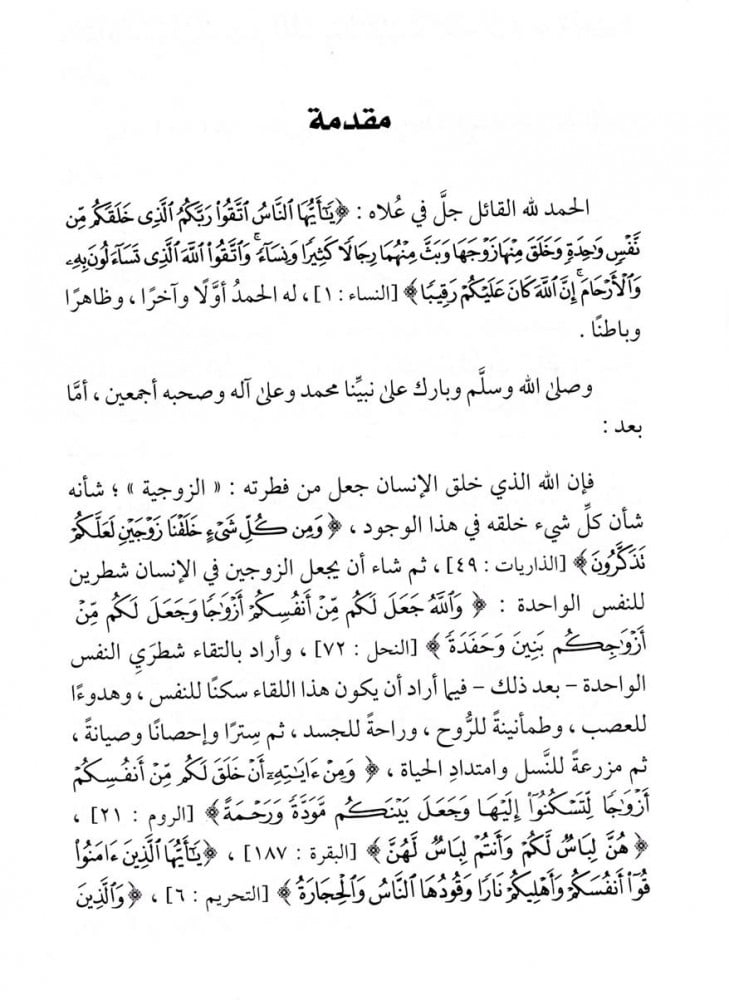 مقدمة
الحمد لله القائل جلَّ في عُلاه : ﴿يَٰٓأَيُّهَا ٱلنَّاسُ ٱتَّقُوا۟ رَبَّكُمُ ٱلَّذِى خَلَقَكُم مِّن
نَّفْسٍ وَٰحِدَةٍ وَخَلَقَ مِنْهَا زَوْجَهَا وَبَثَّ مِنْهُمَا رِجَالًا كَثِيرًا وَنِسَآءً ۚ وَٱتَّقُوا۟ ٱللَّهَ ٱلَّذِى تَسَآءَلُونَ بِهِۦ
وَٱلْأَرْحَامَ ۚ إِنَّ ٱللَّهَ كَانَ عَلَيْكُمْ رَقِيبًا﴾ [النساء : ١] ، له الحمدُ أوَّلًا وآخرًا ، وظاهرًا
وباطنًا .
وصلىٰ الله وسلَّم وبارك علىٰ نبيِّنا محمد وعلىٰ آله وصحبه أجمعين ، أمَّا
بعد :
فإن الله الذي خلق الإنسان جعل من فطرته : « الزوجية » ؛ شأنه
شأن كلِّ شيء خلقه في هذا الوجود ، ﴿ وَمِن كُلِّ شَىْءٍ خَلَقْنَا زَوْجَيْنِ لَعَلَّكُمْ
تَذَكَّرُونَ ﴾ [الذاريات : ٤٩] ، ثم شاء أن يجعل الزوجين في الإنسان شطرين
للنفس الواحدة : ﴿ وَٱللَّهُ جَعَلَ لَكُم مِّنْ أَنفُسِكُمْ أَزْوَٰجًا وَجَعَلَ لَكُم مِّنْ
أَزْوَٰجِكُم بَنِينَ وَحَفَدَةً ﴾ [النحل : ٧٢] ، وأراد بالتقاء شطرَيِ النفس
الواحدة – بعد ذلك – فيما أراد أن يكون هذا اللقاء سكنًا للنفس ، وهدوءًا
للعصب ، وطمأنينةً للرُّوح ، وراحةً للجسد ، ثم سِترًا وإحصانًا وصيانةً ،
ثم مزرعةً للنَّسل وامتدادِ الحياة ، ﴿ وَمِنْ ءَايَٰتِهِۦٓ أَنْ خَلَقَ لَكُم مِّنْ أَنفُسِكُمْ
أَزْوَٰجًا لِّتَسْكُنُوٓا۟ إِلَيْهَا وَجَعَلَ بَيْنَكُم مَّوَدَّةً وَرَحْمَةً ﴾ [الروم : ٢١] ،
﴿ هُنَّ لِبَاسٌ لَّكُمْ وَأَنتُمْ لِبَاسٌ لَّهُنَّ ﴾ [البقرة : ١٨٧] ، ﴿يَٰٓأَيُّهَا ٱلَّذِينَ ءَامَنُوا۟
قُوٓا۟ أَنفُسَكُمْ وَأَهْلِيكُمْ نَارًا وَقُودُهَا ٱلنَّاسُ وَٱلْحِجَارَةُ ﴾ [التحريم : ٦] ، ﴿ وَٱلَّذِينَ